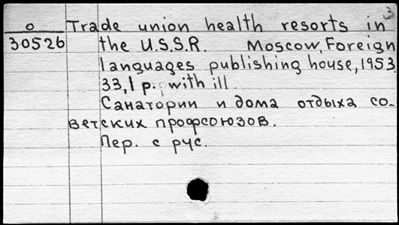 3
о Trade union health resorts in
30526 the U.S.S.R. Moscow, Foreign
languages publishing house, 1953
33, 1 p. with ill.
Санатории и дома отдыха со-
ветских профсоюзов.
Пер. с рус.